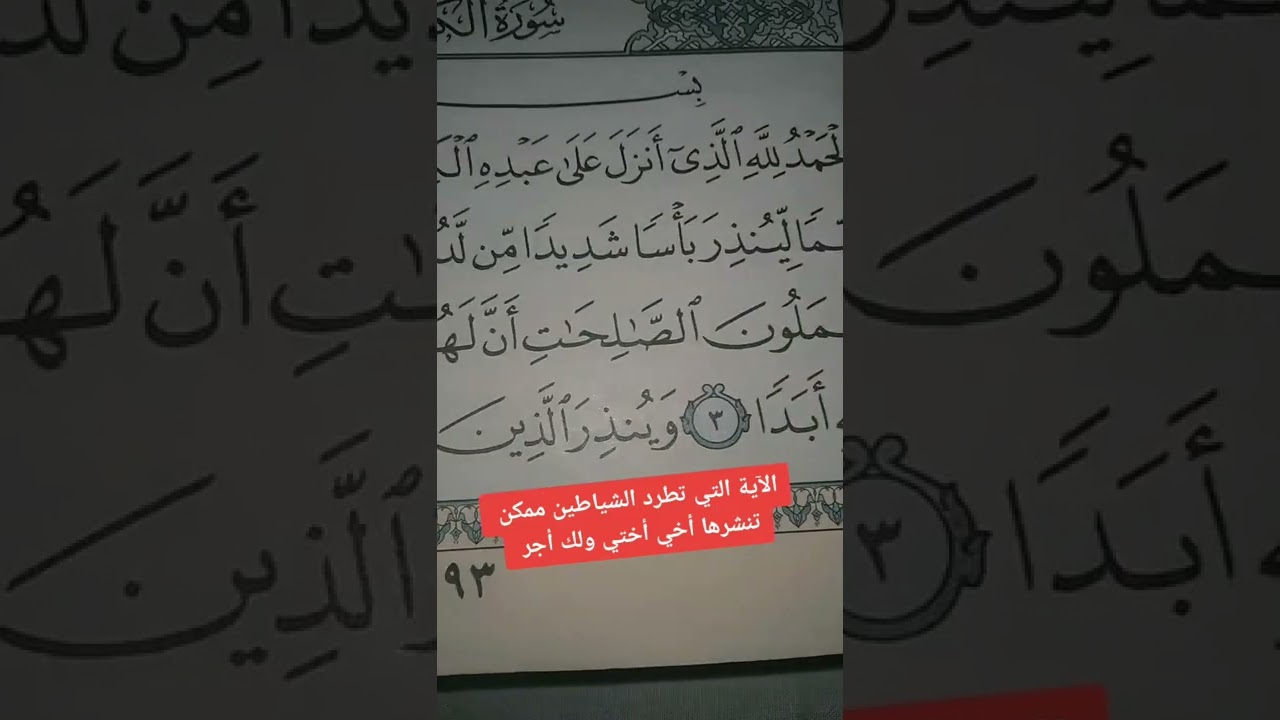 سُورَةُ
بِسْـ
لْحَمْدُ لِلَّهِ ٱلَّذِىٓ أَنزَلَ عَلَىٰ عَبْدِهِ ٱلْكِ
ـمًا لِّيُنذِرَ بَأْسًا شَدِيدًا مِّن لَّدُ
ـمَلُونَ ٱلصَّـٰلِحَـٰتِ أَنَّ لَهُـ
أَبَدًا ٣ وَيُنذِرَ ٱلَّذِينَ
الآية التي تطرد الشياطين ممكن
تنشرها أخي أختي ولك أجر
٩٣